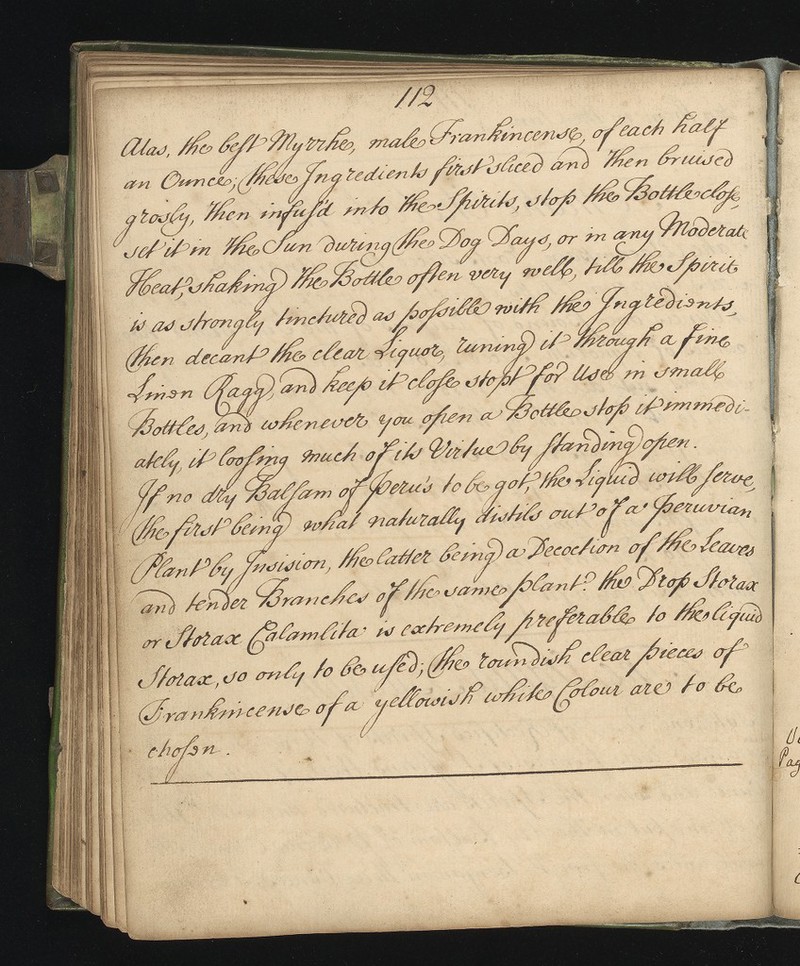 112
Alas, the best Myrrhe, male Frankincense, of each half
an Ounce; these Ingredients first sliced and then bruised
grosly, then infus'd into the Spirits, stop the Bottle close,
set it in the Sun during the Dog Days, or in any Moderate
Heat, shaking the Bottle often very well, till the Spirit
is as strongly tinctured as possible with the Ingredients,
then decant the clear Liquor, runing it through a fine
Linen Ragg, and keep it close stopt for Use in small
Bottles, and whenever you open a Bottle stop it immedi-
ately, it loosing much of its Virtue by standing open.
If no dry Balsam of Peru's to be got, the Liquid will serve,
the first being what naturally distils out of a Peruvian
Plant by Insision, the latter being a Decoction of the Leaves
and tender Branches of the same plant: the Drop Storax
or Storax Calamlita is extremely preferable to the liquid
Storax, so only to be used; the roundish clear pieces of
Frankincense of a yellowish white Colour are to be
chosen.